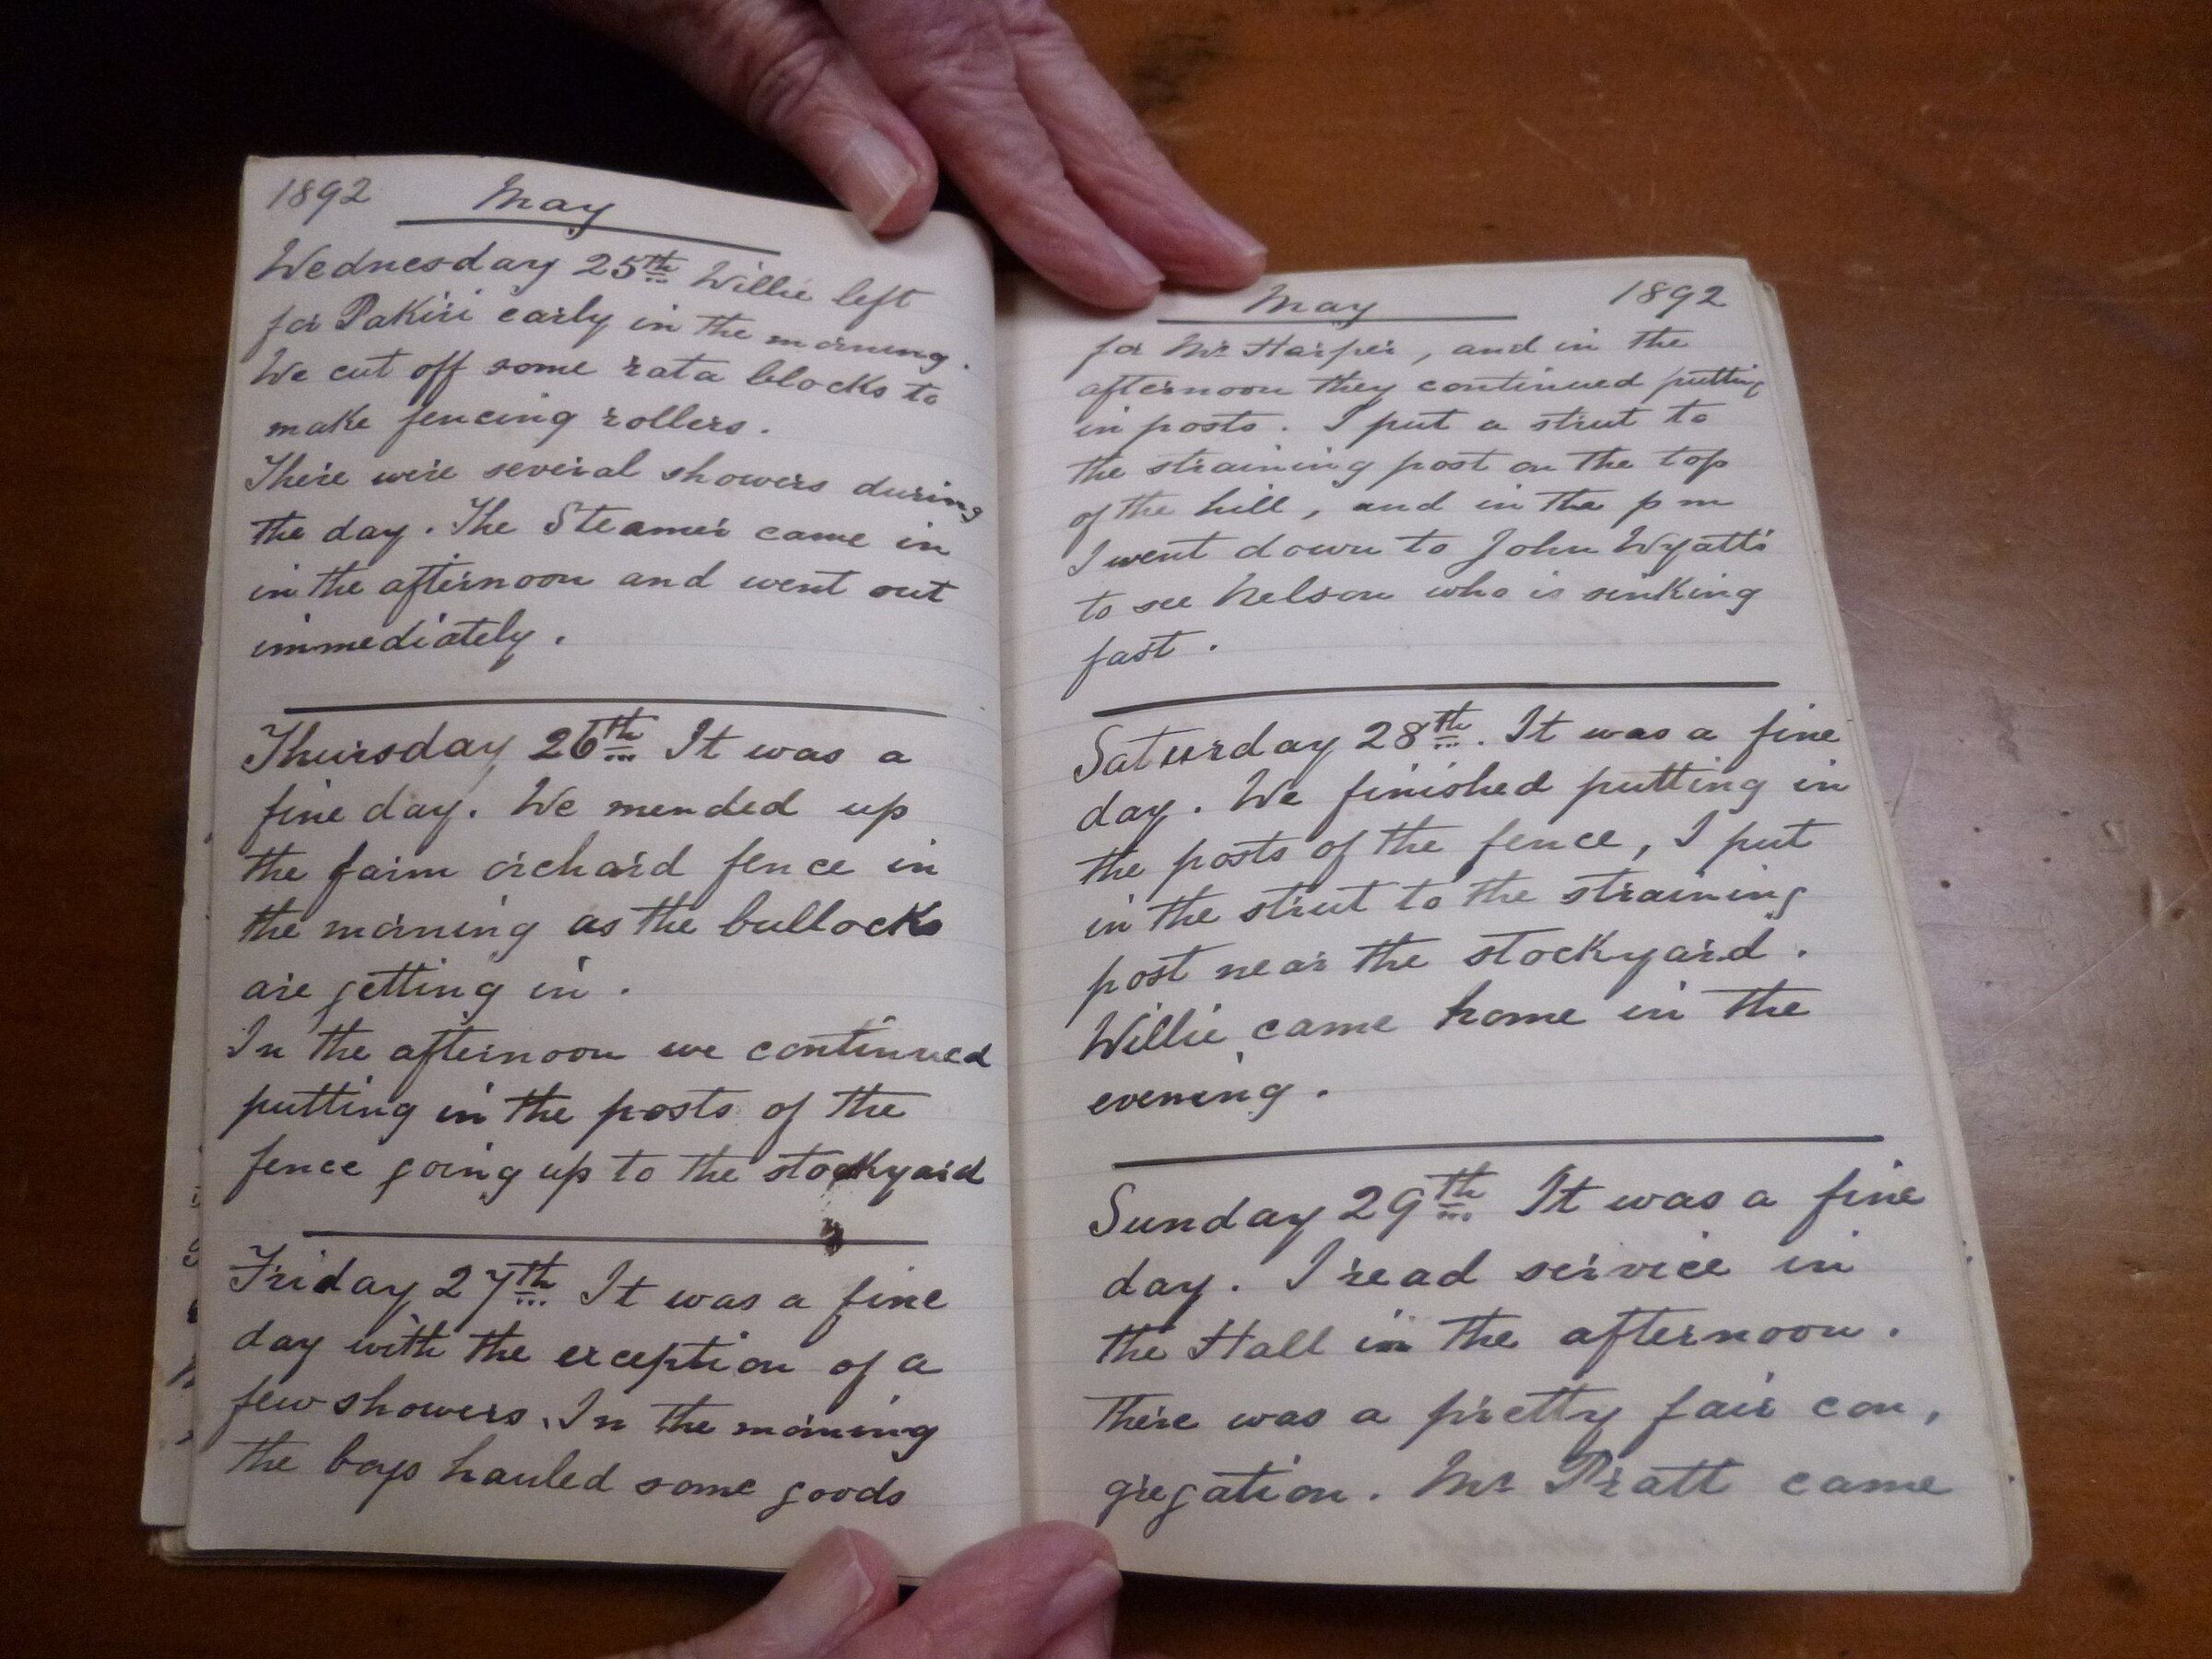 1892 May
Wednesday 25th Willie left
for Pakiri early in the morning.
We cut off some rata blocks to
make fencing rollers.
There were several showers during
the day. The Steamer came in
in the afternoon and went out
immediately.
Thursday 26th It was a
fine day. We mended up
the farm orchard fence in
the morning as the bullocks
are getting in.
In the afternoon we continued
putting in the posts of the
fence going up to the stockyard
Friday 27th It was a fine
day with the exception of a
few showers. In the morning
the boys hauled some goods
May 1892
for Mr Harper, and in the
afternoon they continued putting
in posts. I put a strut to
the straining post on the top
of the hill, and in the p m
I went down to John Wyatt's
to see Nelson who is sinking
fast.
Saturday 28th. It was a fine
day. We finished putting in
the posts of the fence, I put
in the strut to the straining
post near the stockyard.
Willie came home in the
evening.
Sunday 29th It was a fine
day. I read service in
the Hall in the afternoon.
There was a pretty fair con,
gregation. Mr Pratt came